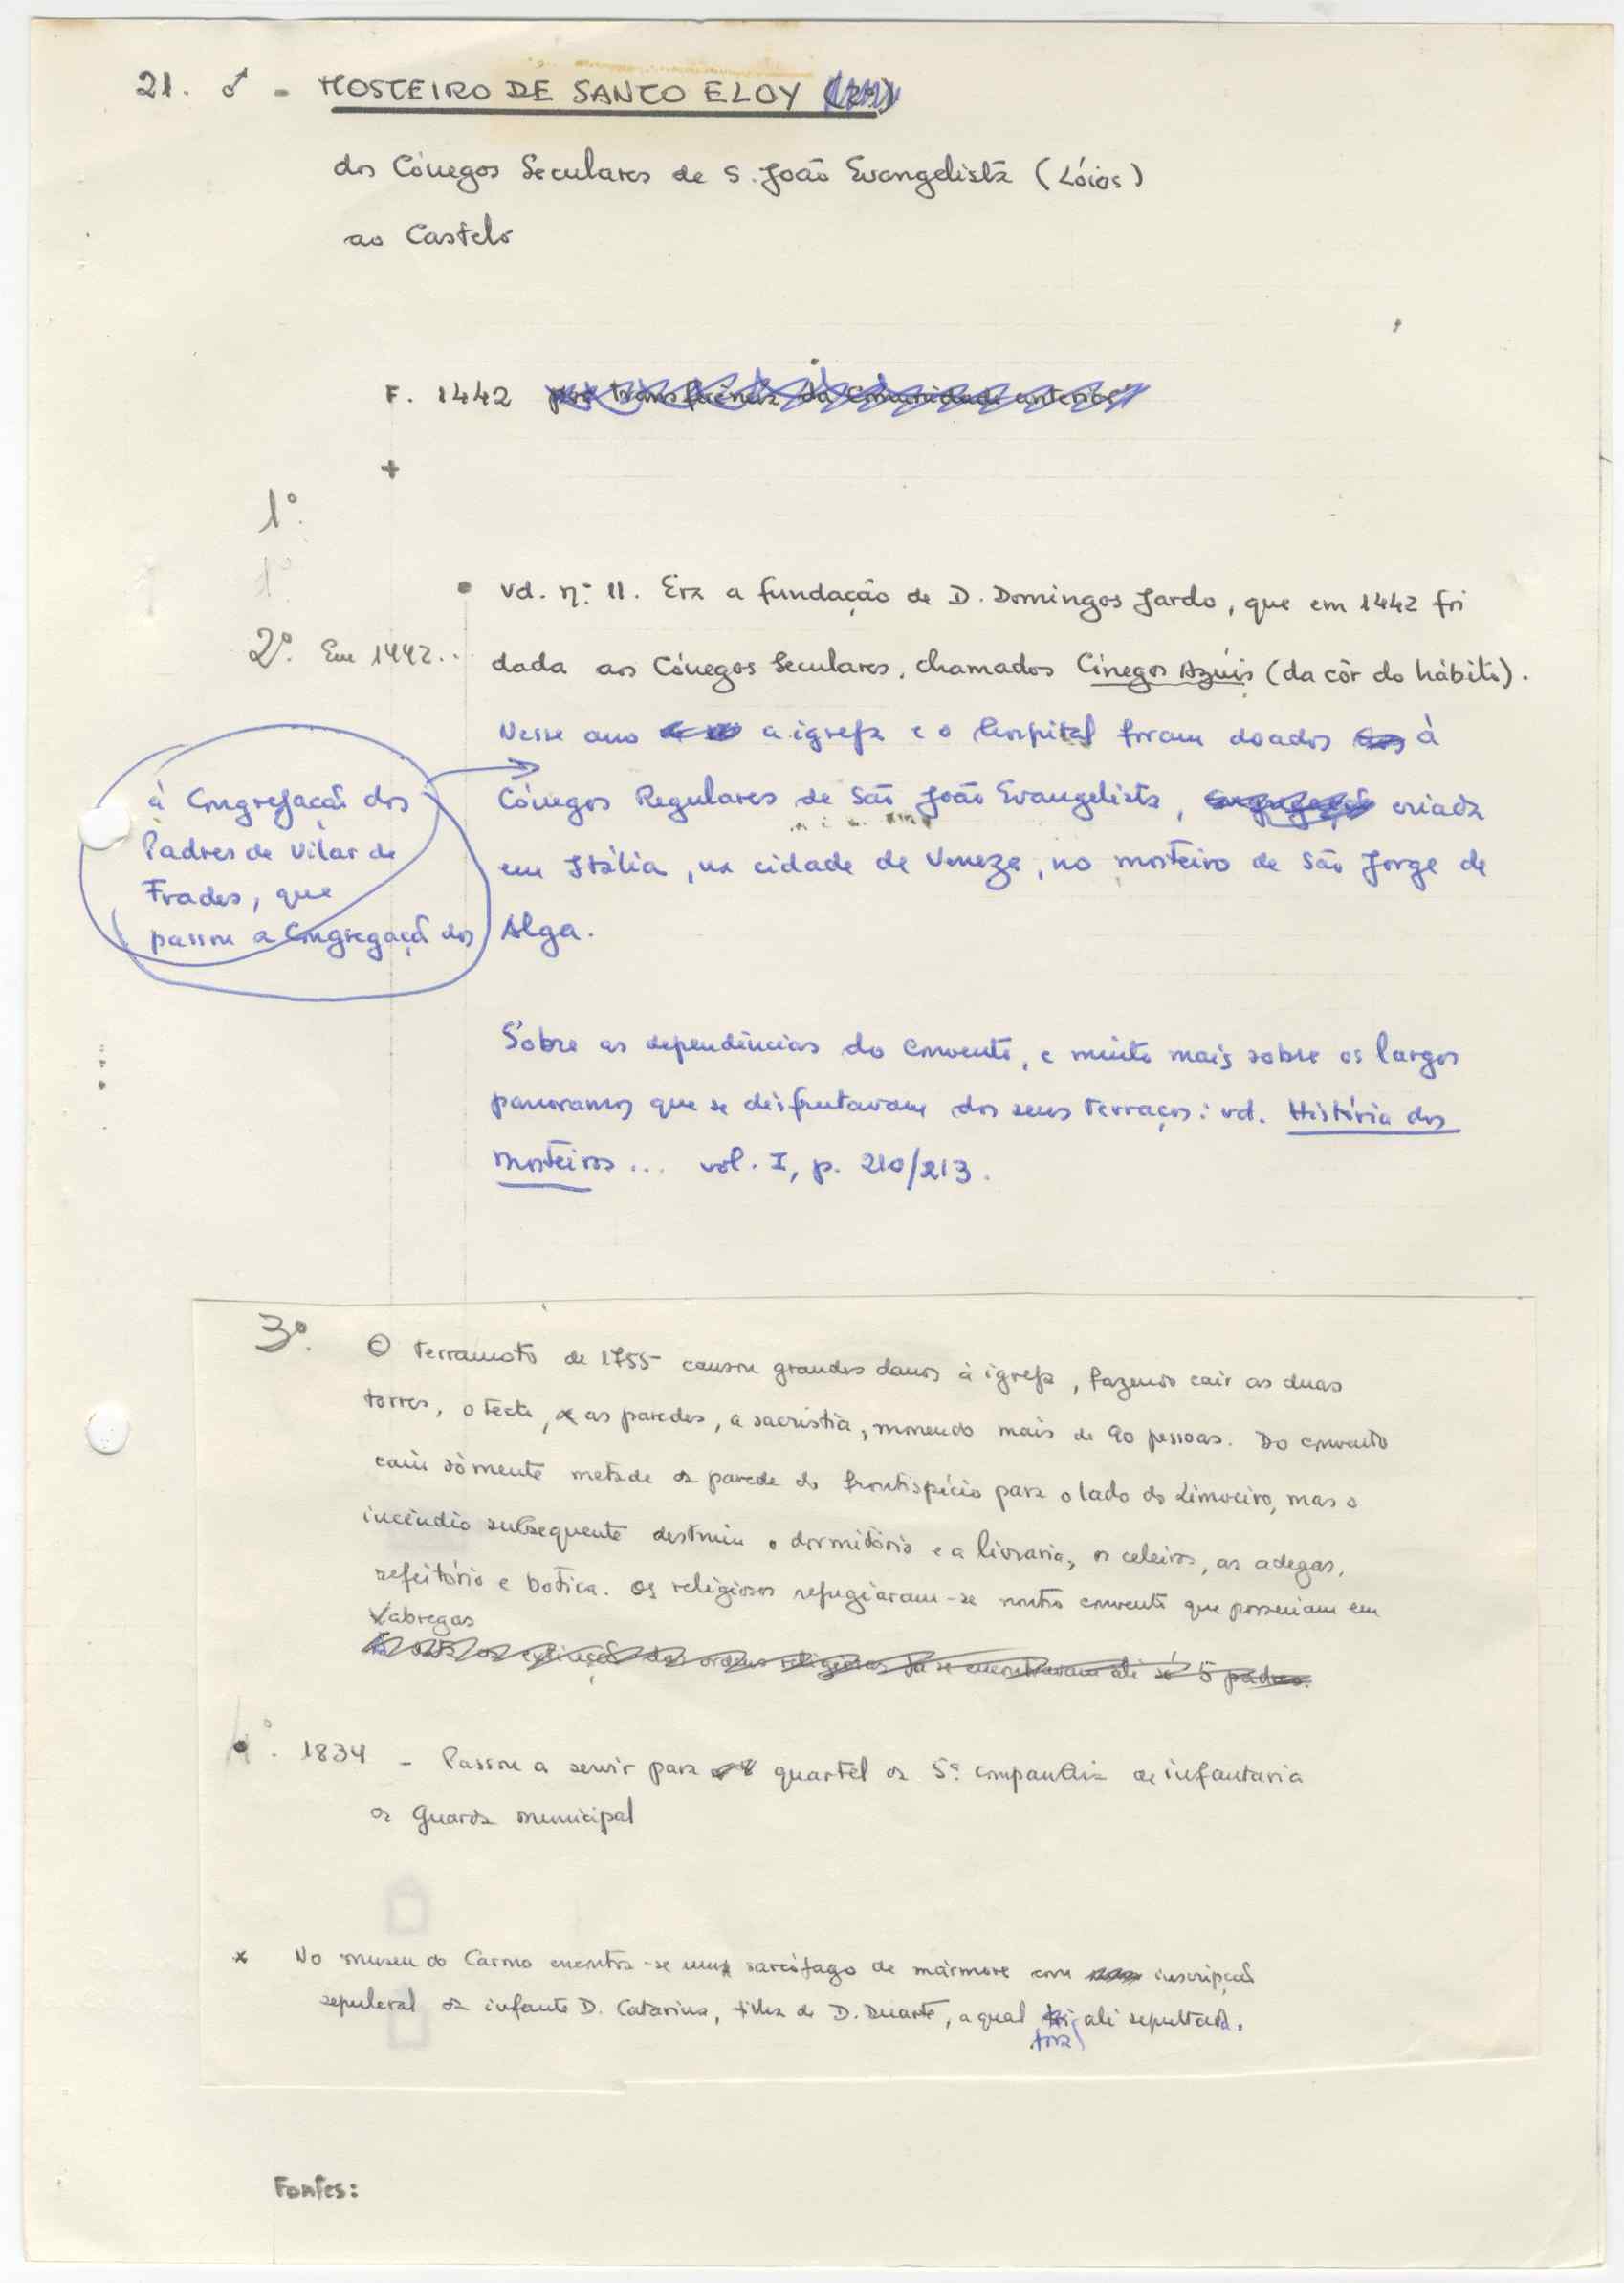 21. ♂ - MOSTEIRO DE SANTO ELOY
dos Cónegos Seculares de S. João Evangelista (Lóios)
ao Castelo
F. 1442 por transferência da Comunidade anterior
+
1º.
1º.
• vd. n.º 11. Era a fundação de D. Domingos Jardo, que em 1442 foi
2º. Em 1442...
dada aos Cónegos Seculares, chamados Cónegos Azuis (da côr do hábito).
Nesse ano a igreja e o hospital foram doados à
à Congregação dos
Padres de Vilar de
Frades, que
passou a Congregação dos
Cónegos Regulares de São João Evangelista, criada
em Itália, na cidade de Veneza, no mosteiro de São Jorge de
Alga.
Sobre as dependências do convento, e muito mais sobre os largos
panoramas que se disfrutavam dos seus terraços: vd. História dos
Mosteiros... vol. I, p. 210/213.
3º. O terramoto de 1755 causou grandes danos à igreja, fazendo cair as duas
torres, o tecto, as paredes, a sacristia, morrendo mais de 90 pessoas. Do convento
caiu sòmente metade da parede do frontispício para o lado do Limoeiro, mas o
incêndio subsequente destruiu o dormitório e a livraria, os celeiros, as adegas,
refeitório e botica. Os religiosos refugiaram-se noutro convento que possuiam em
Xabregas
extinção das ordens religiosas já se encontravam ali só 5 padres.
4º. 1834 - Passou a servir para quartel da 5ª companhia de infantaria
da Guarda municipal
x No museu do Carmo encontra-se um sarcófago de mármore com inscripção
sepulcral da infanta D. Catarina, filha de D. Duarte, a qual foi ali sepultada.
fora
Fontes: